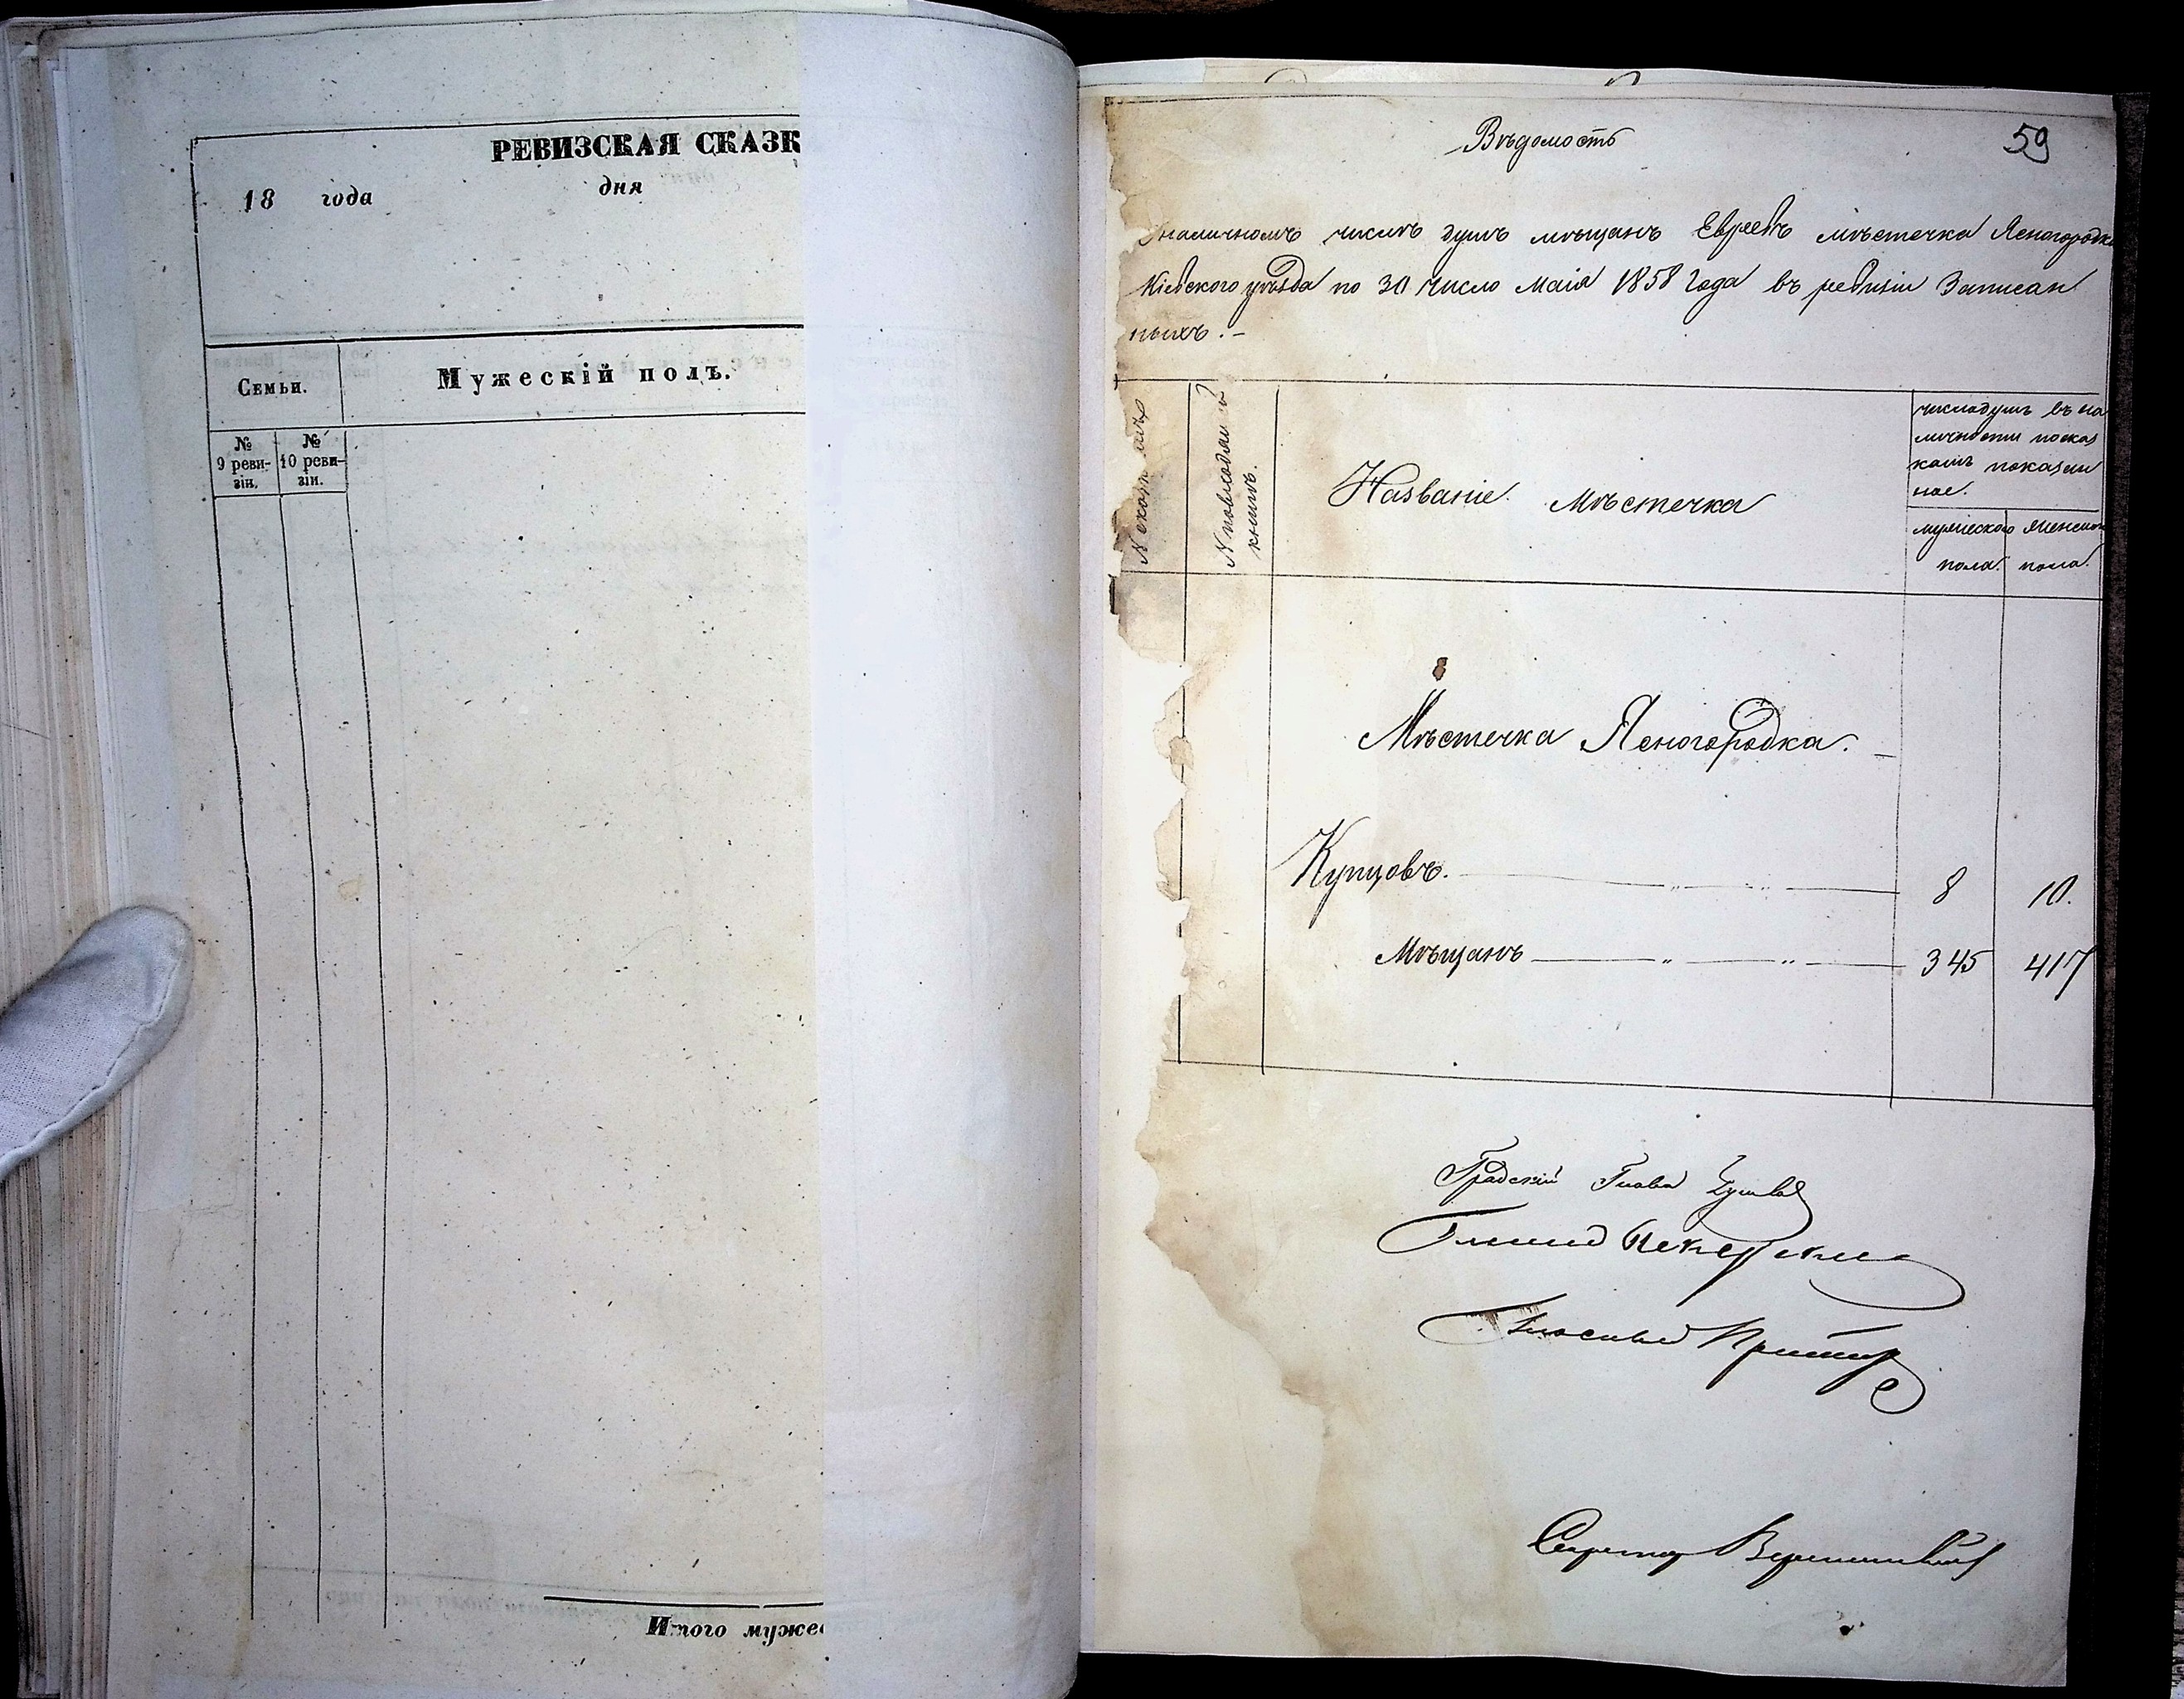 РЕВИЗСКАЯ СКАЗК
18 года дня
Семьи.
Мужескій полъ.
№ 9 реви-зіи.
№ 10 реви-зіи.
Итого мужес
59
Вѣдомость
О наличномъ числѣ душъ мѣщанъ Евреевъ мѣстечка Ясногородк
Кіевского уѣзда по 30 число Маія 1858 года въ ревизіи Записан
ныхъ.-
№
№ по
книгѣ.
Названіе. Мѣстечка
число душъ въ на
личности по сказ
камъ показан
ное.
мужеского
пола.
женског
пола.
Мѣстечка Ясногородка.
Купцовъ. 8 10.
Мѣщанъ 345 417
Градскій Глава
Гласный
Гласный
Секретар